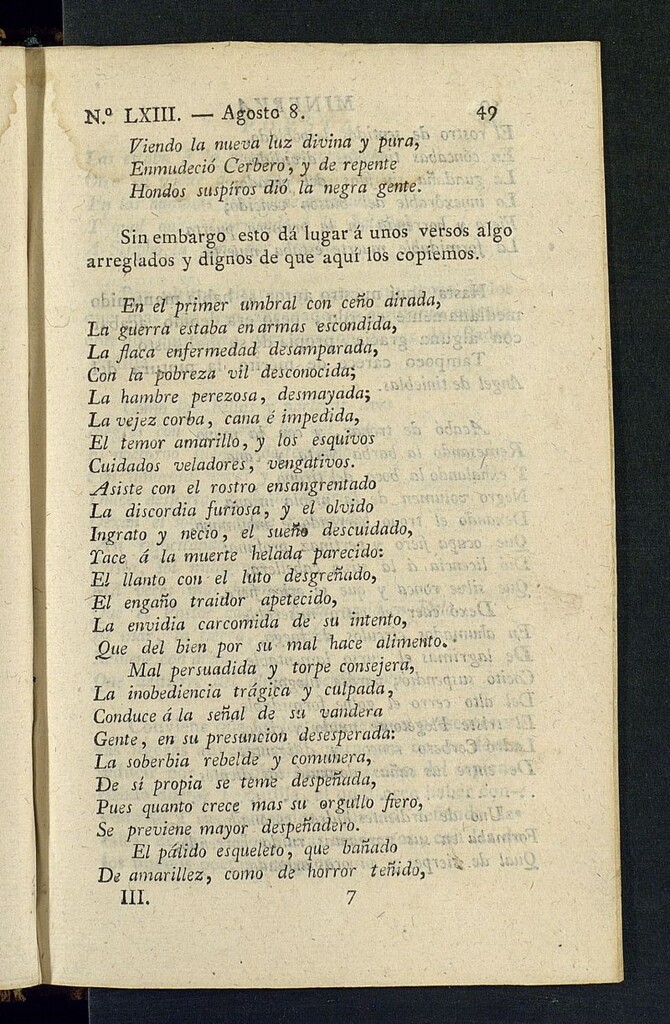 N.º LXIII. — Agosto 8. 49
Viendo la nueva luz divina y pura,
Enmudeció Cerbero, y de repente
Hondos suspiros dió la negra gente.
Sin embargo esto dá lugar á unos versos algo
arreglados y dignos de que aquí los copiemos.
En el primer umbral con ceño airada,
La guerra estaba en armas escondida,
La flaca enfermedad desamparada,
Con la pobreza vil desconocida;
La hambre perezosa, desmayada;
La vejez corba, cana é impedida,
El temor amarillo, y los esquivos
Cuidados veladores, vengativos.
Asiste con el rostro ensangrentado
La discordia furiosa, y el olvido
Ingrato y necio, el sueño descuidado,
Yace á la muerte helada parecido:
El llanto con el luto desgreñado,
El engaño traidor apetecido,
La envidia carcomida de su intento,
Que del bien por su mal hace alimento.
Mal persuadida y torpe consejera,
La inobediencia trágica y culpada,
Conduce á la señal de su vandera
Gente, en su presuncion desesperada:
La soberbia rebelde y comunera,
De sí propia se teme despeñada,
Pues quanto crece mas su orgullo fiero,
Se previene mayor despeñadero.
El pálido esqueleto, que bañado
De amarillez, como de horror teñido,
III. 7